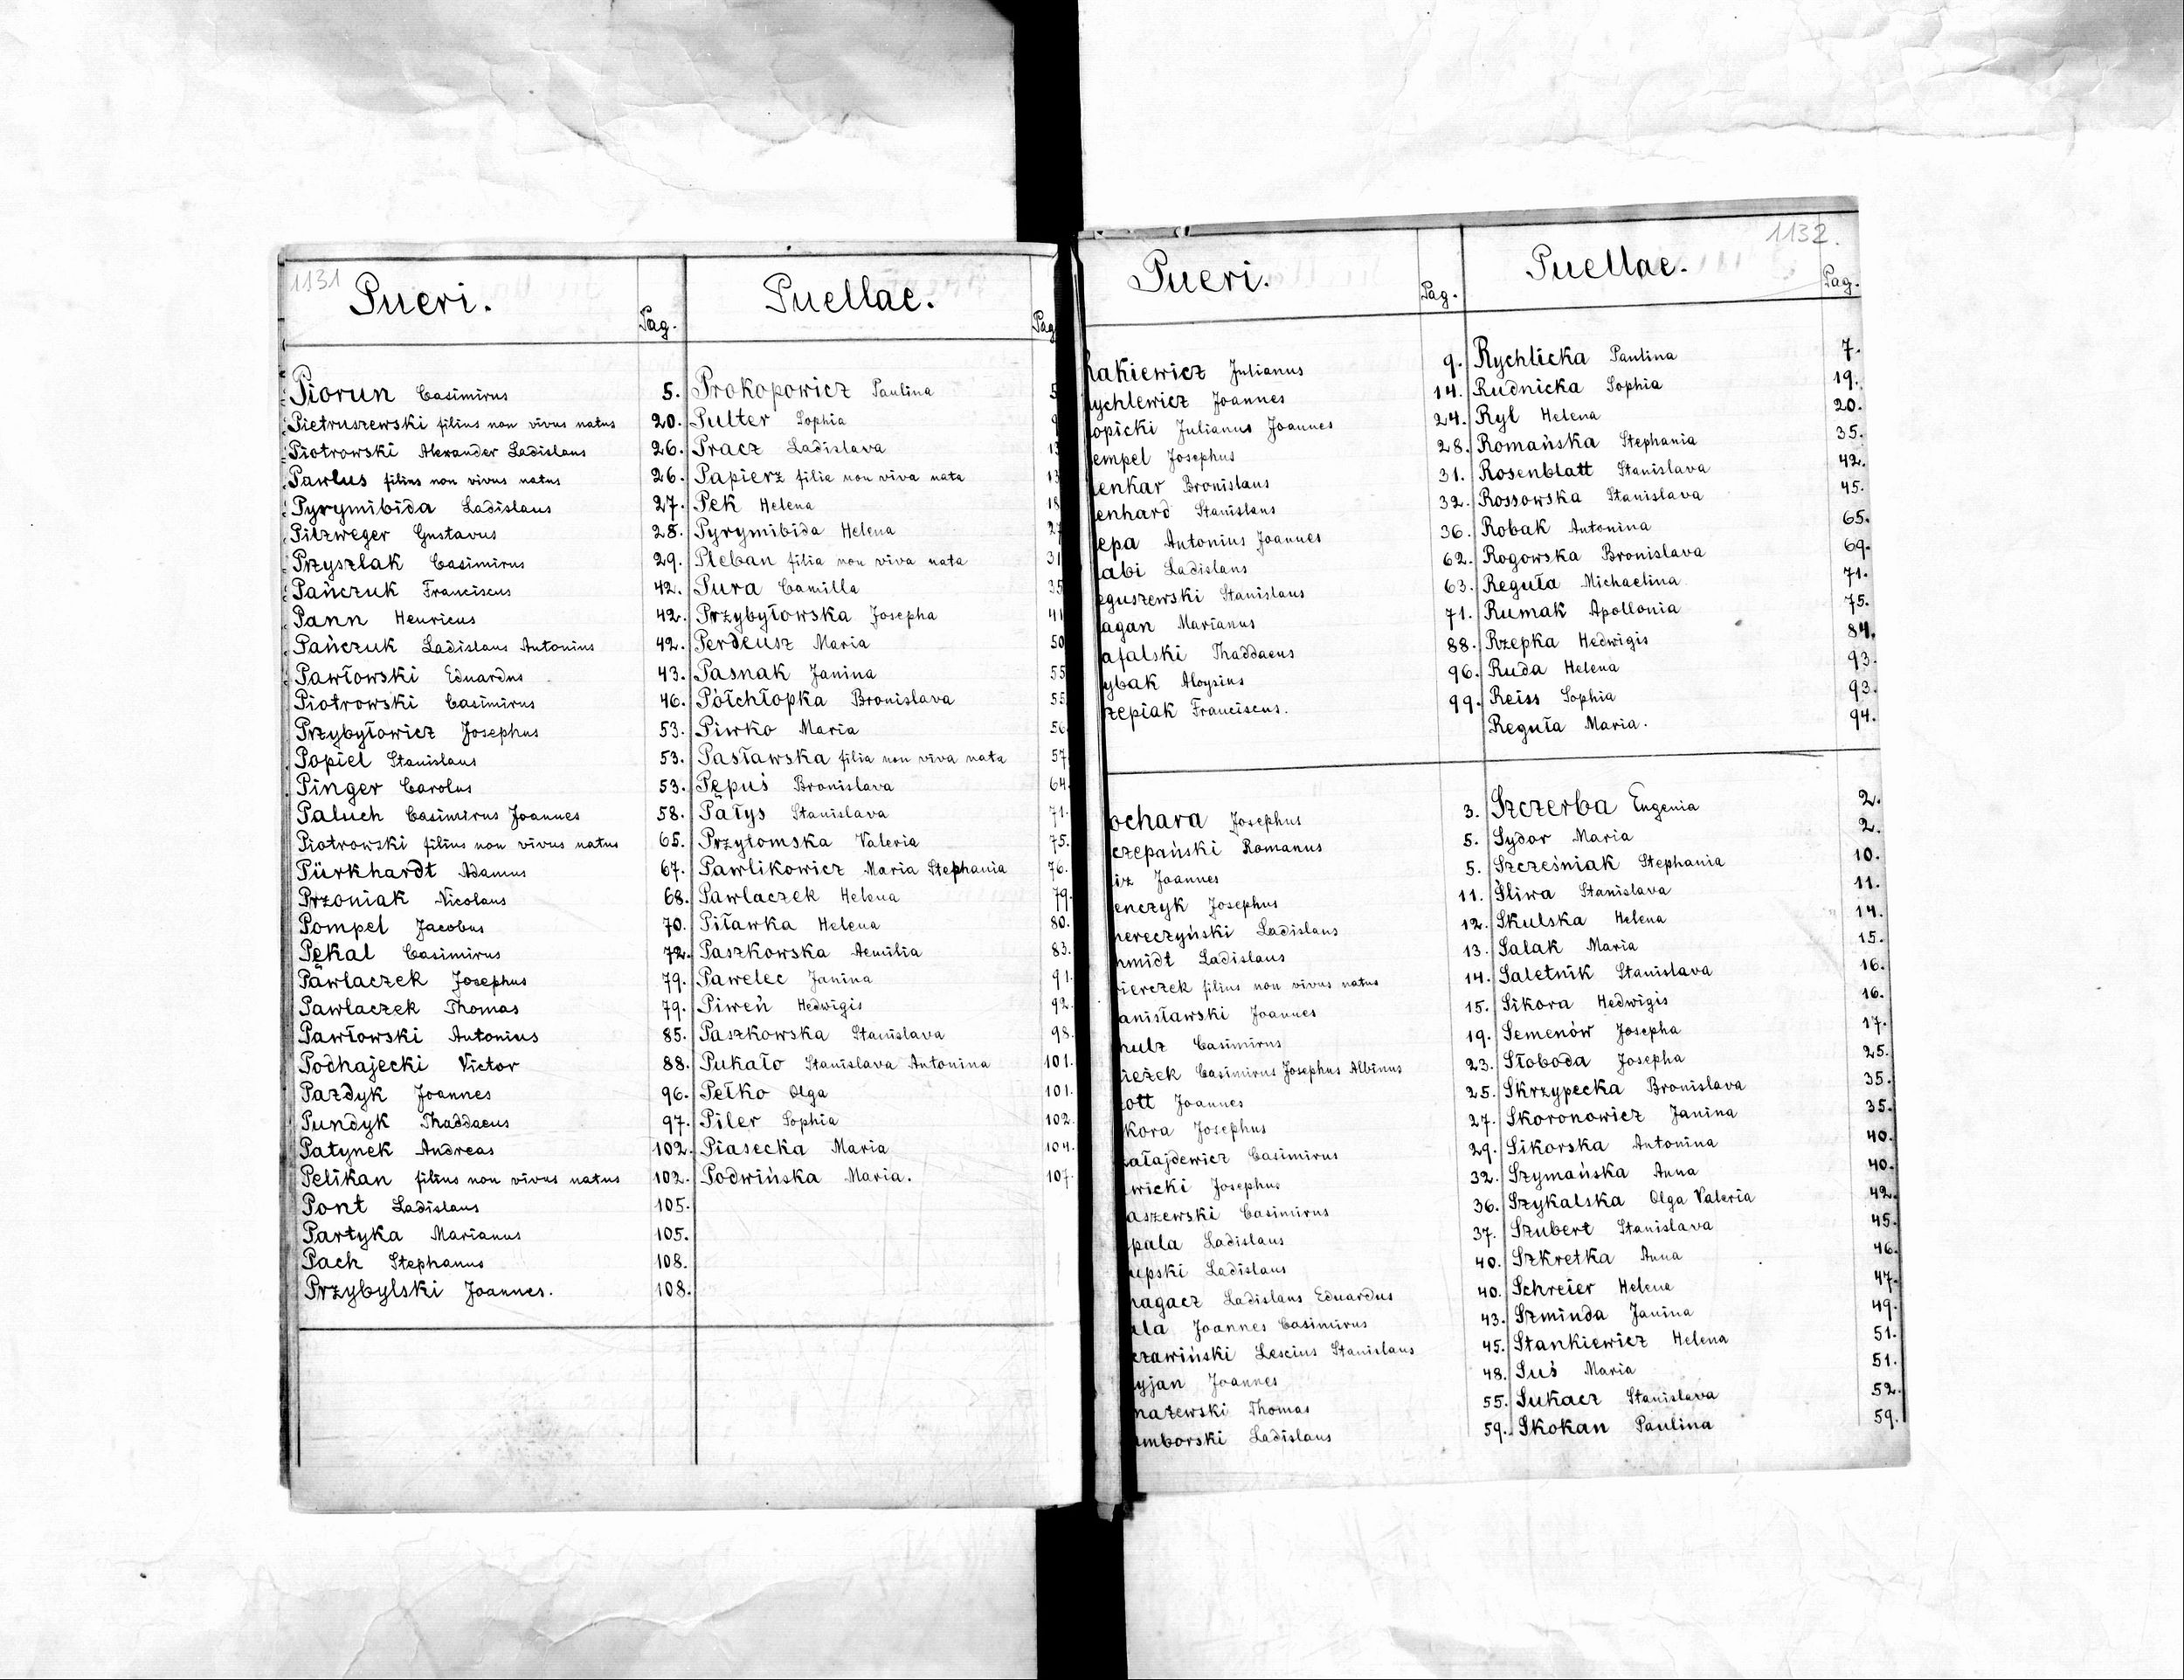 1131
Pueri. Pag. Puellae. Pag
Piorun Casimirus 5. Prokopowicz Paulina 5
Pietruszewski filius non vivus natus 20. Pulter Sophia
Piotrowski Alexander Ladislaus 26. Pracz Ladislava 13
Pawlus filius non vivus natus 26. Papierz filia non viva nata 13
Pyrymibida Ladislaus 27. Pek Helena 18
Pilzweger Gustavus 28. Pyrymibida Helena 27
Przyszlak Casimirus 29. Pleban filia non viva nata 31
Pańczuk Franciscus 42. Pura Camilla 35
Pann Henricus 42. Przybyłowska Josepha 41
Pańczuk Ladislaus Antonius 42. Perdeusz Maria 50
Pawłowski Eduardus 43. Pasnak Janina 55
Piotrowski Casimirus 46. Półchłopka Bronislava 55
Przybyłowicz Josephus 53. Piwko Maria 56
Popiel Stanislaus 53. Pasławska filia non viva nata 57
Pinger Carolus 53. Pępuś Bronislava 64
Paluch Casimirus Joannes 58. Pałys Stanislava 71.
Piotrowski filius non vivus natus 65. Przytomska Valeria 75.
Pürkhardt Adamus 67. Pawlikowicz Maria Stephania 76.
Przoniak Nicolaus 68. Pawlaczek Helena 79.
Pompel Jacobus 70. Piławka Helena 80.
Pękal Casimirus 72. Paszkowska Aemilia 83.
Pawlaczek Josephus 79. Pawelec Janina 91.
Pawlaczek Thomas 79. Piweń Hedwigis 92.
Pawłowski Antonius 85. Paszkowska Stanislava 98.
Podhajecki Victor 88. Pukało Stanislava Antonina 101.
Pazdyk Joannes 96. Pełko Olga 101.
Pundyk Thaddaeus 97. Piler Sophia 102.
Patynek Andreas 102. Piasecka Maria 104.
Pelikan filius non vivus natus 102. Podwińska Maria. 107.
Pont Ladislaus 105.
Partyka Marianus 105.
Pach Stephanus 108.
Przybylski Joannes. 108.
1132.
Pueri. Pag. Puellae. Pag.
akiewicz Julianus 9. Rychlicka Paulina 7.
ychlewicz Joannes 14. Rudnicka Sophia 19.
opicki Julianus Joannes 24. Ryl Helena 20.
empel Josephus 28. Romańska Stephania 35.
enkar Bronislaus 31. Rosenblatt Stanislava 42.
enhard Stanislaus 32. Rossowska Stanislava 45.
epa Antonius Joannes 36. Robak Antonina 65.
abi Ladislaus 62. Rogowska Bronislava 69.
eguszewski Stanislaus 63. Reguła Michaelina 71.
agan Marianus 71. Rumak Apollonia 75.
afalski Thaddaeus 88. Rzepka Hedwigis 84.
ybak Aloysius 96. Ruda Helena 93.
zepiak Franciscus. 99. Reiss Sophia 93.
Reguła Maria. 94.
ochara Josephus 3. Szczerba Eugenia 2.
czepański Romanus 5. Sydor Maria 2.
iz Joannes 5. Szcześniak Stephania 10.
enczyk Josephus 11. Śliwa Stanislava 11.
ereczyński Ladislaus 12. Skulska Helena 14.
midt Ladislaus 13. Salak Maria 15.
ierczek filius non vivus natus 14. Saletnik Stanislava 16.
anisławski Joannes 15. Sikora Hedwigis 16.
ulz Casimirus 19. Semenów Josepha 17.
ieżek Casimirus Josephus Albinus 23. Słoboda Josepha 25.
ott Joannes 25. Skrzypecka Bronislava 35.
kora Josephus 27. Skoronowicz Janina 35.
ałajdewicz Casimirus 29. Sikorska Antonina 40.
wicki Josephus 32. Szymańska Anna 40.
aszewski Casimirus 36. Szykalska Olga Valeria 42.
pala Ladislaus 37. Szubert Stanislava 45.
epski Ladislaus 40. Szkretka Anna 46.
agacz Ladislaus Eduardus 40. Schreier Helena 47.
la Joannes Casimirus 43. Szminda Janina 49.
czawiński Lescius Stanislaus 45. Stankiewicz Helena 51.
yjan Joannes 48. Suś Maria 51.
nażewski Thomas 55. Sukacz Stanislava 52.
mborski Ladislaus 59. Skokan Paulina 59.